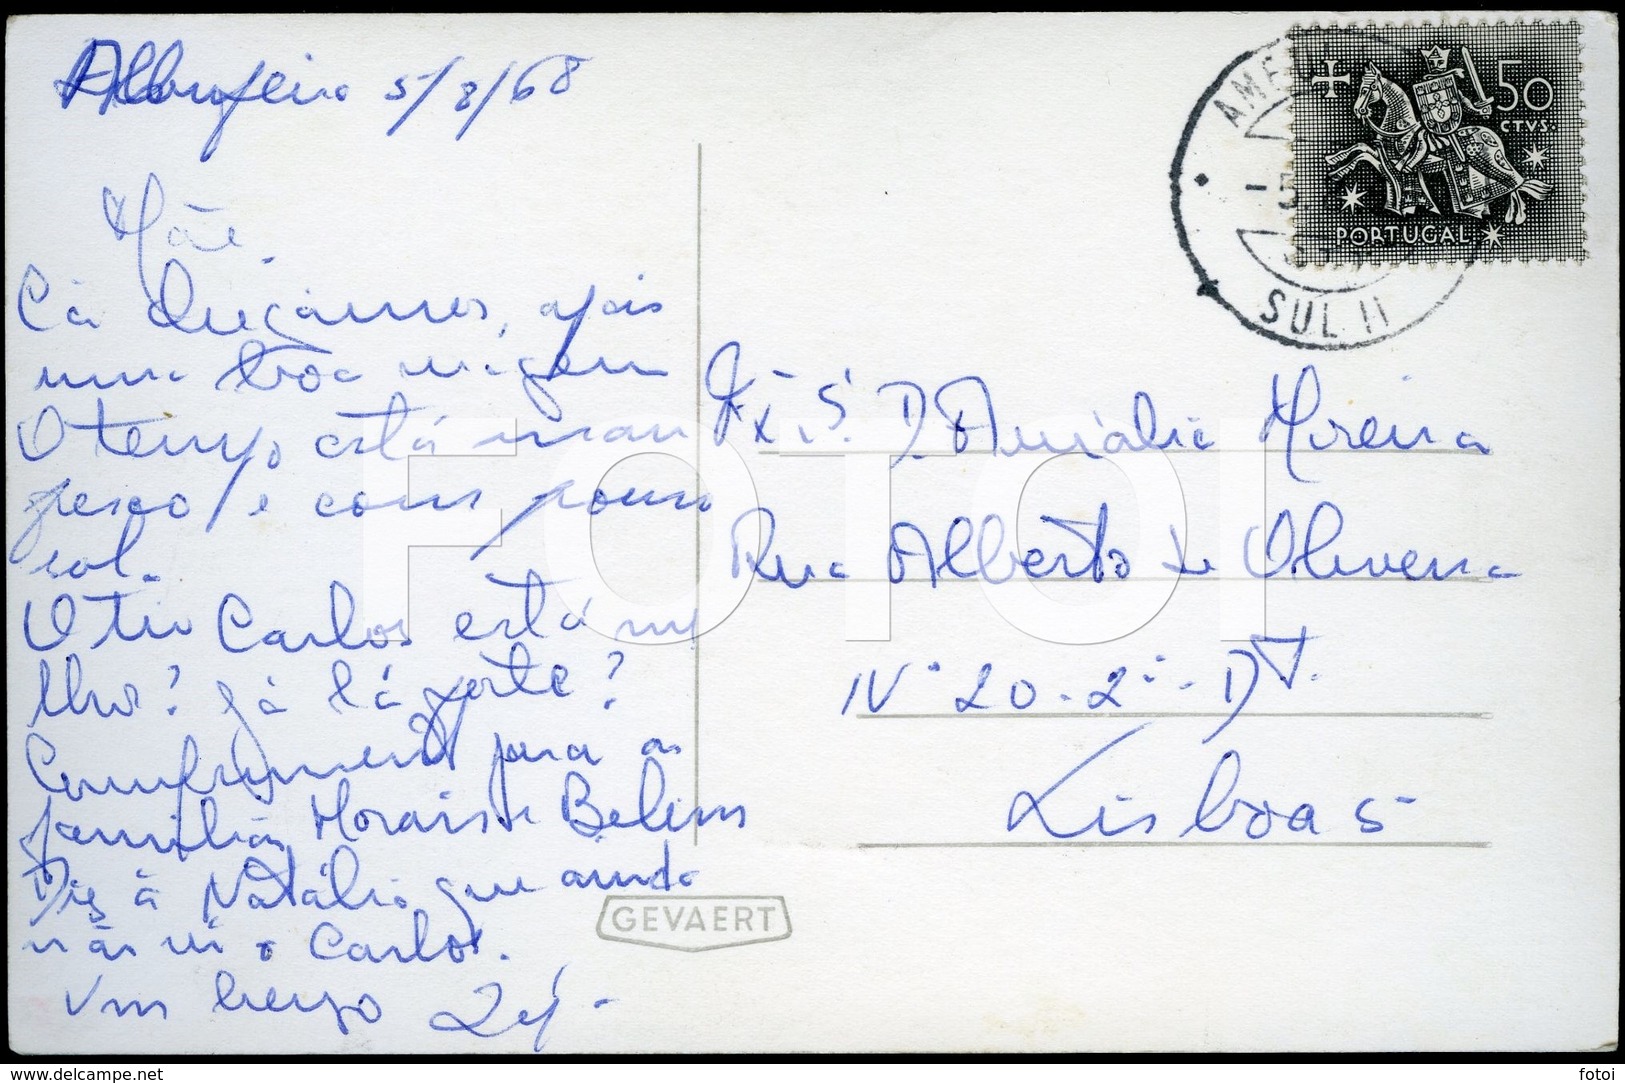 Albufeira 5/8/68
Mãe
Cá chegámos, após
uma boa viagem
O tempo está man
fresco e com pouco
sol.
O tio Carlos está me
lhor? Já lá foste?
Cumprimentos para as
famílias Morais e Belem
Diz à Natália que ainda
não vi o Carlos.
Um beijo Zé
50
CTVS.
PORTUGAL
AME
SUL II
Exª Sª D. Amália Moreira
Rua Alberto de Oliveira
Nº 20-2º-DT.
Lisboa 5
GEVAERT
FOTOI
www.delcampe.net
fotoi